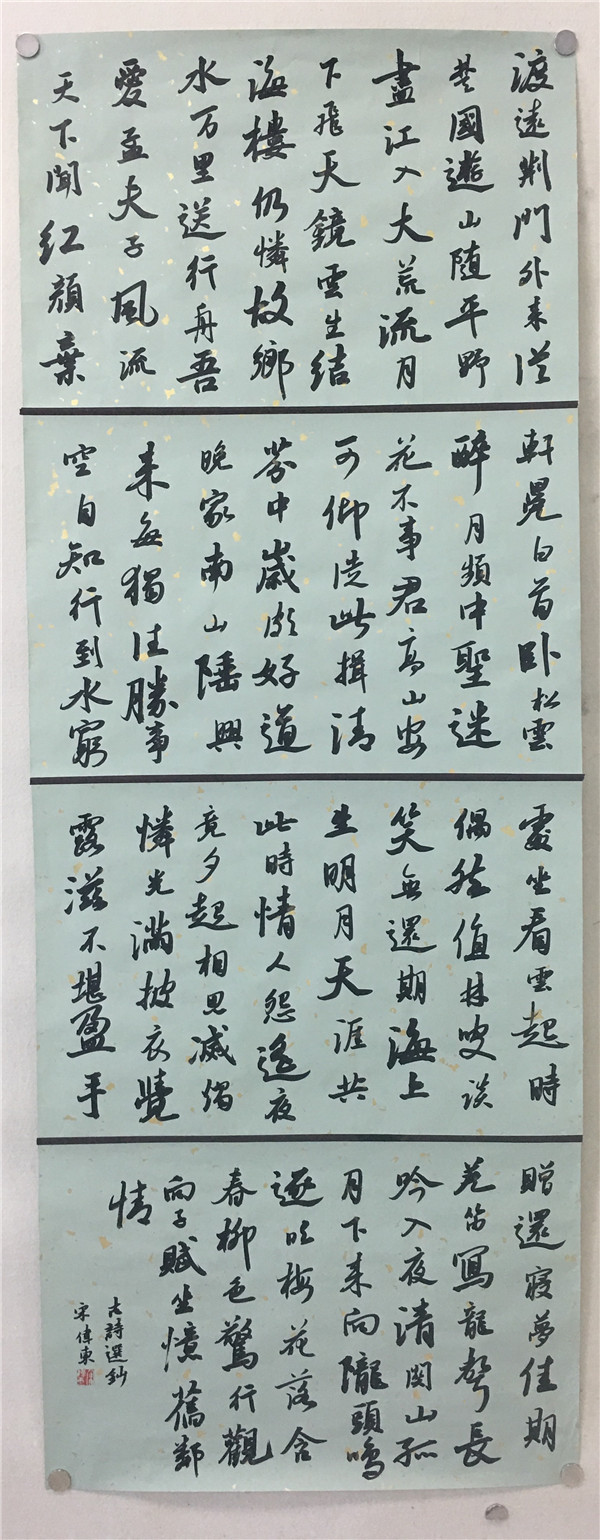 渡遠荆門外来從
楚國遊山随平野
盡江入大荒流月
下飛天鏡雲生结
海樓仍憐故鄉
水万里送行舟吾
愛孟夫子風流
天下聞红顔棄
軒冕白首卧松雲
醉月頻中聖迷
花不事君高山安
可仰從此揖清
芬中歲頗好道
晚家南山陲興
来每獨往勝事
空自知行到水窮
處坐看雲起時
偶然值林叟談
笑無還期海上
生明月天涯共
此時情人怨遥夜
竟夕起相思滅燭
憐光滿披衣覺
露滋不堪盈手
贈還寝夢佳期
羌笛寫龍聲長
吟入夜清関山孤
月下来向隴頭鳴
逐吹梅花落含
春柳色驚行觀
向子賦坐憶舊鄰
情
古詩選鈔
宋偉東